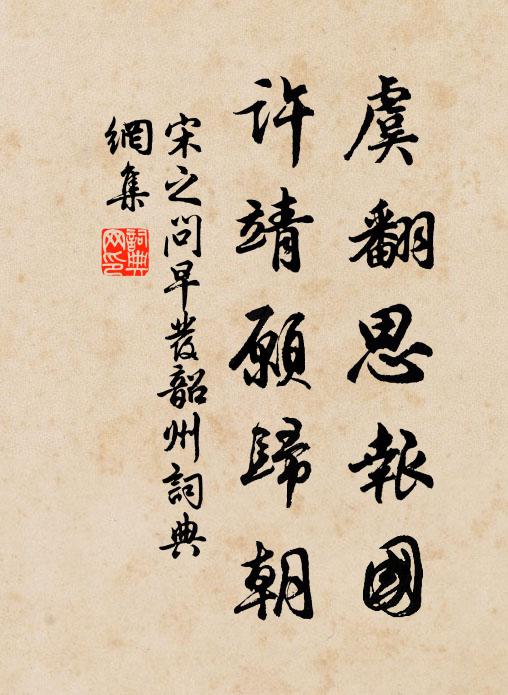 虞翻思報國
許靖願歸朝
宋之問早發韶州詞典
網集
詞典網印